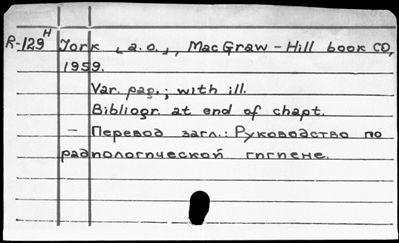 R-129ᴴ York [a.o.], MacGraw-Hill book CO,
1959.
Var. pag.; with ill.
Bibliogr. at end of chapt.
– Перевод загл.: Руководство по
радиологической гигиене.